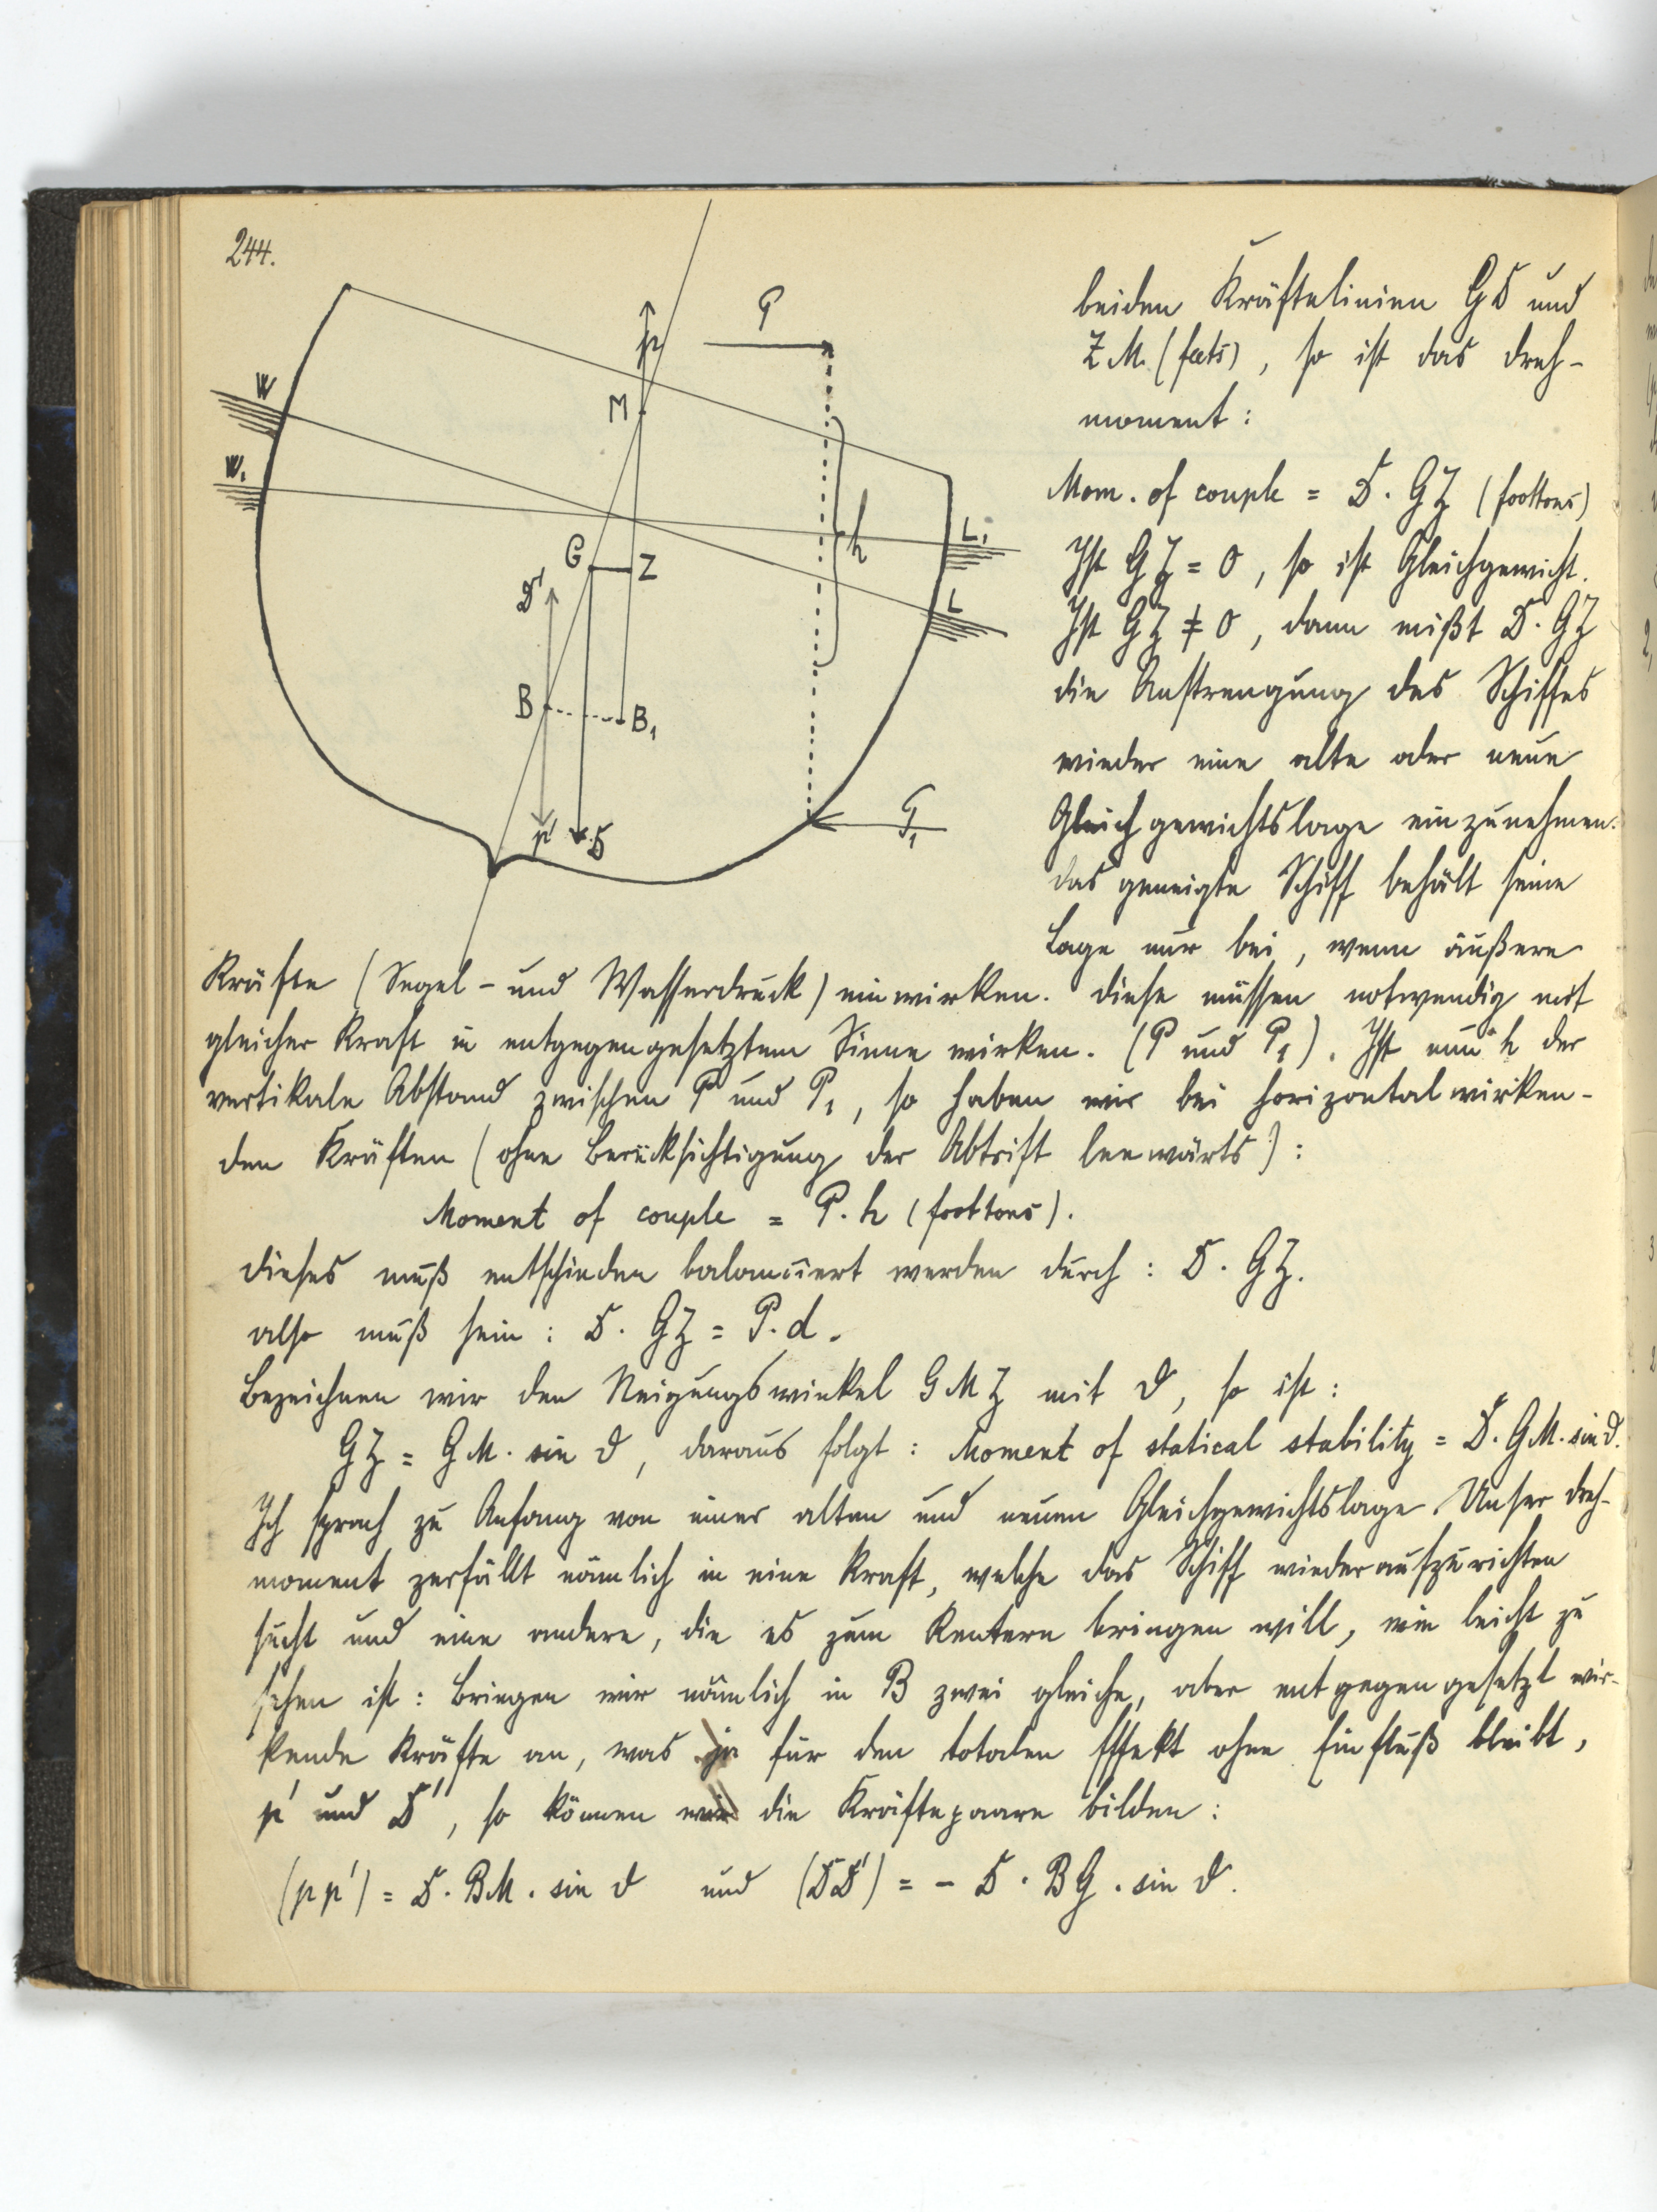 244.
P
p
M
W
W₁
h
L₁
G
Z
D'
L
B
B₁
P₁
p'
D
beiden Kräftelinien GD und
ZM. (feets), so ist das Dreh-
moment:
Mom. of couple = D. GZ (foottons)
Ist GZ = 0, so ist Gleichgewicht.
Ist GZ ≠ 0, dann mißt D. GZ
die Anstrengung des Schiffes
wieder eine alte oder neue
Gleichgewichtslage einzunehmen.
Das geneigte Schiff behält seine
Lage nur bei, wenn äußere
Kräfte (Segel- und Wasserdruck) einwirken. Diese müssen notwendig mit
gleicher Kraft in entgegengesetztem Sinne wirken. (P und P₁). Ist nun h der
vertikale Abstand zwischen P und P₁, so haben wir bei horizontal wirken-
den Kräften (ohne Berücksichtigung der Abtrift leewärts):
Moment of couple = P. h (foottons).
Dieses muß entschieden balanciert werden durch: D. GZ.
also muß sein: D. GZ = P. d.
Bezeichnen wir den Neigungswinkel GMZ mit ϑ, so ist:
GZ = GM. sin ϑ, daraus folgt: Moment of statical stability = D. GM. sin ϑ.
Ich sprach zu Anfang von einer alten und neuen Gleichgewichtslage. Unser Dreh-
moment zerfällt nämlich in eine Kraft, welche das Schiff wiederaufzurichten
sucht und eine andere, die es zum Kentern bringen will, wie leicht zu
sehen ist: Bringen wir nämlich in B zwei gleiche, aber entgegengesetzt wir-
kende Kräfte an, was ja für den totalen Effekt ohne Einfluß bleibt,
p' und D', so können wir die Kräftepaare bilden:
(pp') = D. BM. sin ϑ und (DD') = - D. BG. sin ϑ.